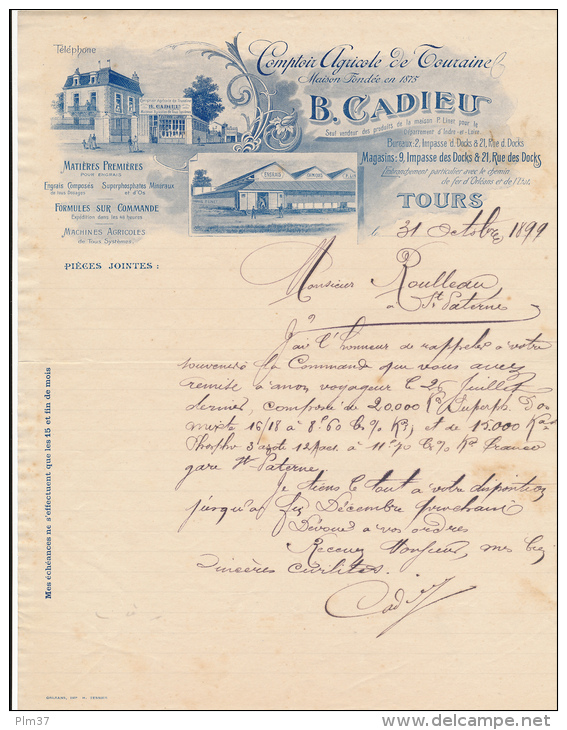 Téléphone
Comptoir Agricole de Touraine
Maison Fondée en 1875
B. CADIEU
Seul vendeur des produits de la maison P. Linet pour le
Département d'Indre-et-Loire.
Bureaux: 2, Impasse d. Docks & 21, Rue d. Docks
Magasins: 9, Impasse des Docks & 21, Rue des Docks
Embranchement particulier avec le chemin
de fer d'Orléans et de l'Etat.
TOURS
B. CADIEU
ENGRAIS
CHIMIQUES
MATIÈRES PREMIÈRES
POUR ENGRAIS
Engrais Composés
de tous Dosages
Superphosphates Minéraux
et d'Os
FORMULES SUR COMMANDE
Expédition dans les 48 heures
MACHINES AGRICOLES
de Tous Systèmes.
le 31 Octobre 1899
PIÈCES JOINTES :
Monsieur Roulleau
à St Paterne
J'ai l'honneur de rappeler à votre
souvenir la Commande que vous avez
remise à mon voyageur le 26 Juillet
dernier, composée de 20.000 Ks Superph. Do
mixte 16/18 à 8f60 les % Ks, et de 15.000 Ks
Phospho 3 azote 12 à 11f70 les % Ks franco
gare St Paterne
Je tiens le tout à votre disposition
jusqu'à fin Décembre prochain
Dévoué à vos ordres
Recevez Monsieur, mes
sincères civilités.
Cadieu
Mes échéances ne s'effectuent que les 15 et fin de mois
Plm_37
www.delcampe.net